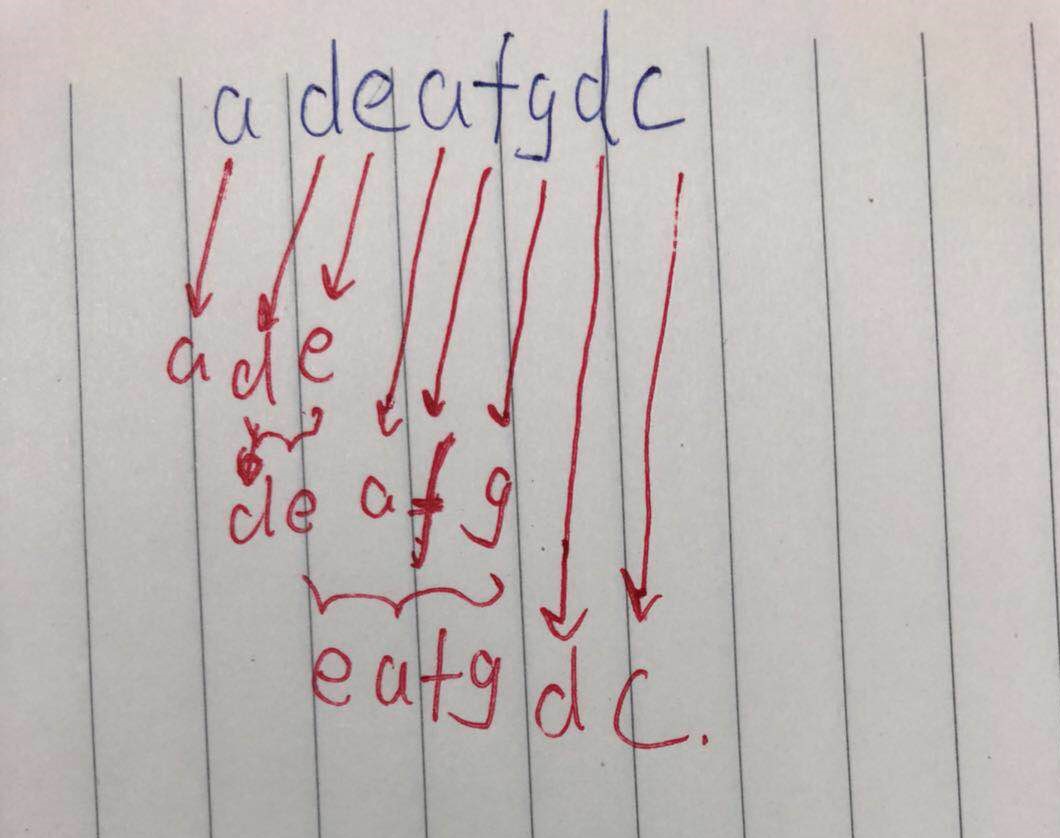 a deafgdc
a de
de a f g
eafg d c.